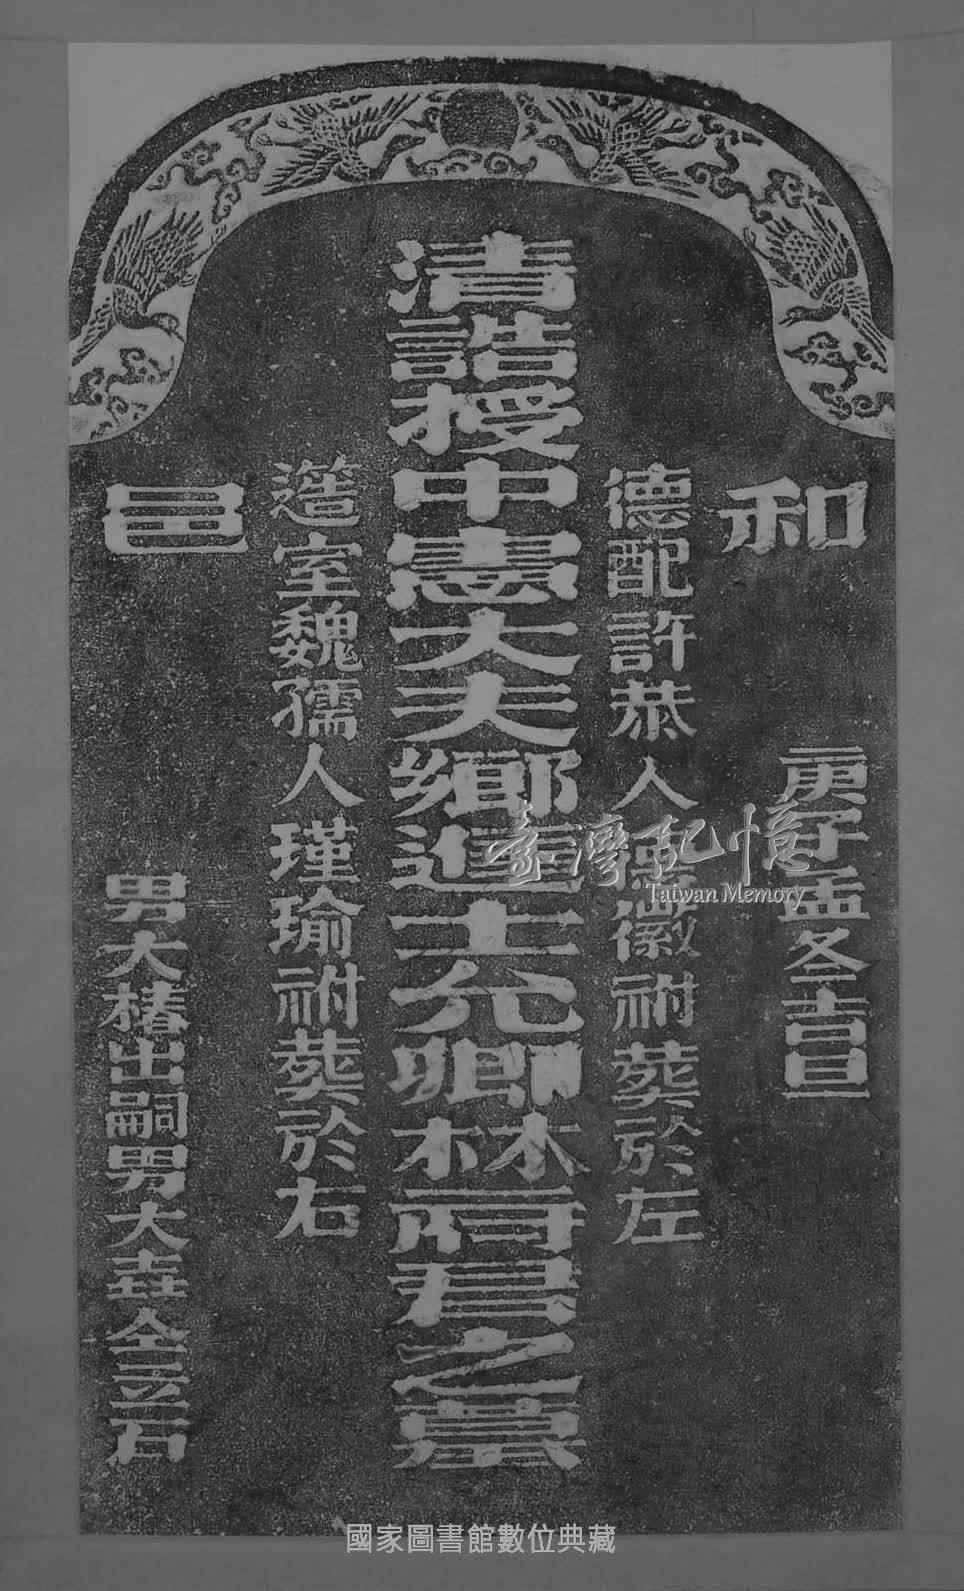 和邑
庚子孟冬吉旦
德配許恭人徽祔葬於左
清誥授中憲大夫鄉進士允卿林府君之墓
簉室魏孺人瑾瑜祔葬於右
男大椿出嗣男大仝立石
臺灣記憶
Taiwan Memory
國家圖書館數位典藏